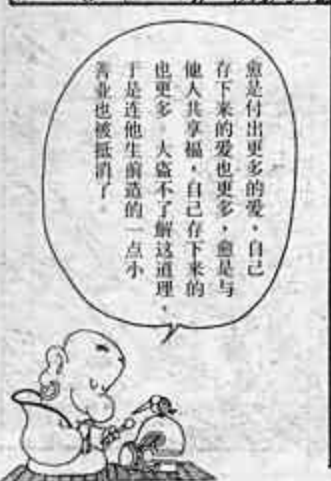 愈是付出更多的爱，自己
存下来的爱也更多，愈是与
他人共享福，自己存下来的
也更多。大盗不了解这道理，
于是连他生前造的一点小
善业也被抵消了。